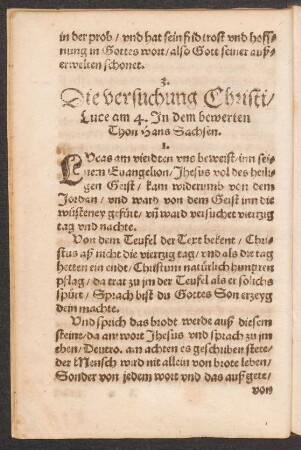 in der prob / vnd hat sein frid trost vnd hoff-
nung in Gottes wort / also Gott seiner auß-
erwelten schonet.
3.
Die versuchung Christi /
Luce am 4. In dem bewerten
Thon Hans Sachsen.
1.
LVcas am vierdten vns beweist / inn sei-
nem Euangelion / Jhesus vol des heili-
gen Geist / kam widerumb von dem
Jordan / vnd ward von dem Geist inn die
wüsteney gefürt / vñ ward versuchet viertzig
tag vnd nachte.
Von dem Teufel der Text bekent / Chri-
stus aß nicht die viertzig tag / vnd als die tag
hetten ein endt / Christum natürlich hungren
pflag / da trat zu jm der Teufel als er solichs
spürt / Sprach bist du Gottes Son erzeyg
dein machte.
Vnd sprich das brodt werde auß diesem
steine / da antwort Jhesus vnd sprach zu jm
ehen / Deutro. am achten es geschriben stete /
der Mensch wird nit allein von brote leben /
Sonder von jedem wort vnd das auß gete /
von